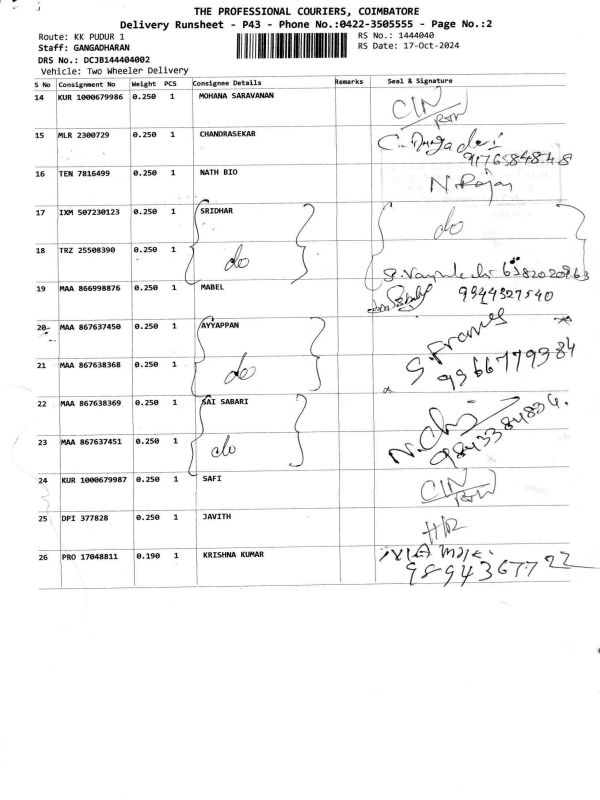 THE PROFESSIONAL COURIERS, COIMBATORE
Delivery Runsheet - P43 - Phone No.:0422-3505555 - Page No.:2
Route: KK PUDUR 1 RS No.: 1444040
Staff: GANGADHARAN RS Date: 17-Oct-2024
DRS No.: DCJB144404002
Vehicle: Two Wheeler Delivery
S No Consignment No Weight PCS Consignee Details Remarks Seal & Signature
14 KUR 1000679986 0.250 1 MOHANA SARAVANAN CIN
15 MLR 2300729 0.250 1 CHANDRASEKAR
9176584848
16 TEN 7816499 0.250 1 NATH BIO N. Rajan
17 IXM 507230123 0.250 1 SRIDHAR do
18 TRZ 25508390 0.250 1 do
6382020963
19 MAA 866998876 0.250 1 MABEL 9944327540
20 MAA 867637450 0.250 1 AYYAPPAN
21 MAA 867638368 0.250 1 do 9366779384
22 MAA 867638369 0.250 1 SAI SABARI
23 MAA 867637451 0.250 1 do 9843384834.
24 KUR 1000679987 0.250 1 SAFI CIN
25 DPI 377828 0.250 1 JAVITH
26 PRO 17048811 0.190 1 KRISHNA KUMAR
9894367722